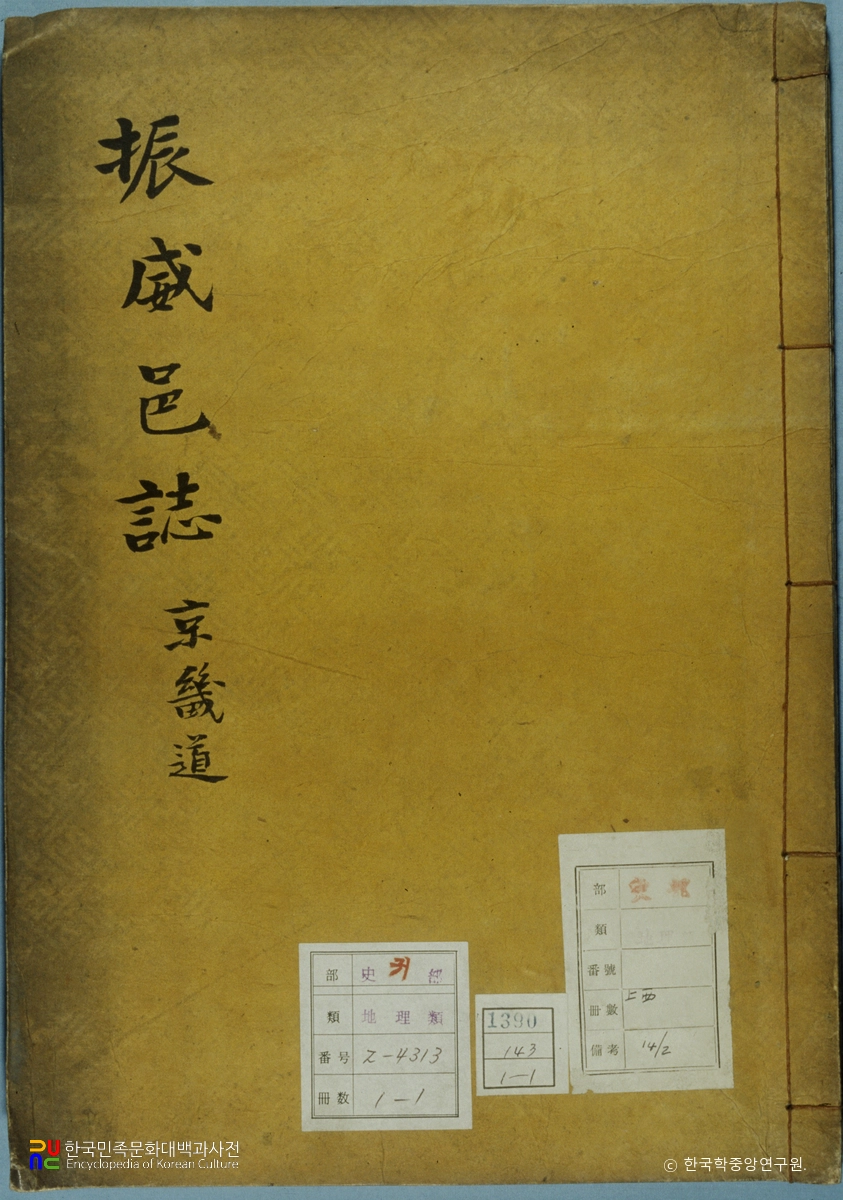 振威邑誌 京畿道
部 史 귀 部
類 地理類
番号 2-4313
冊数 1-1
1390
143
1-1
部 史部
類
番號
冊數 上西
備考 14/2
한국민족문화대백과사전
Encyclopedia of Korean Culture
ⓒ 한국학중앙연구원.